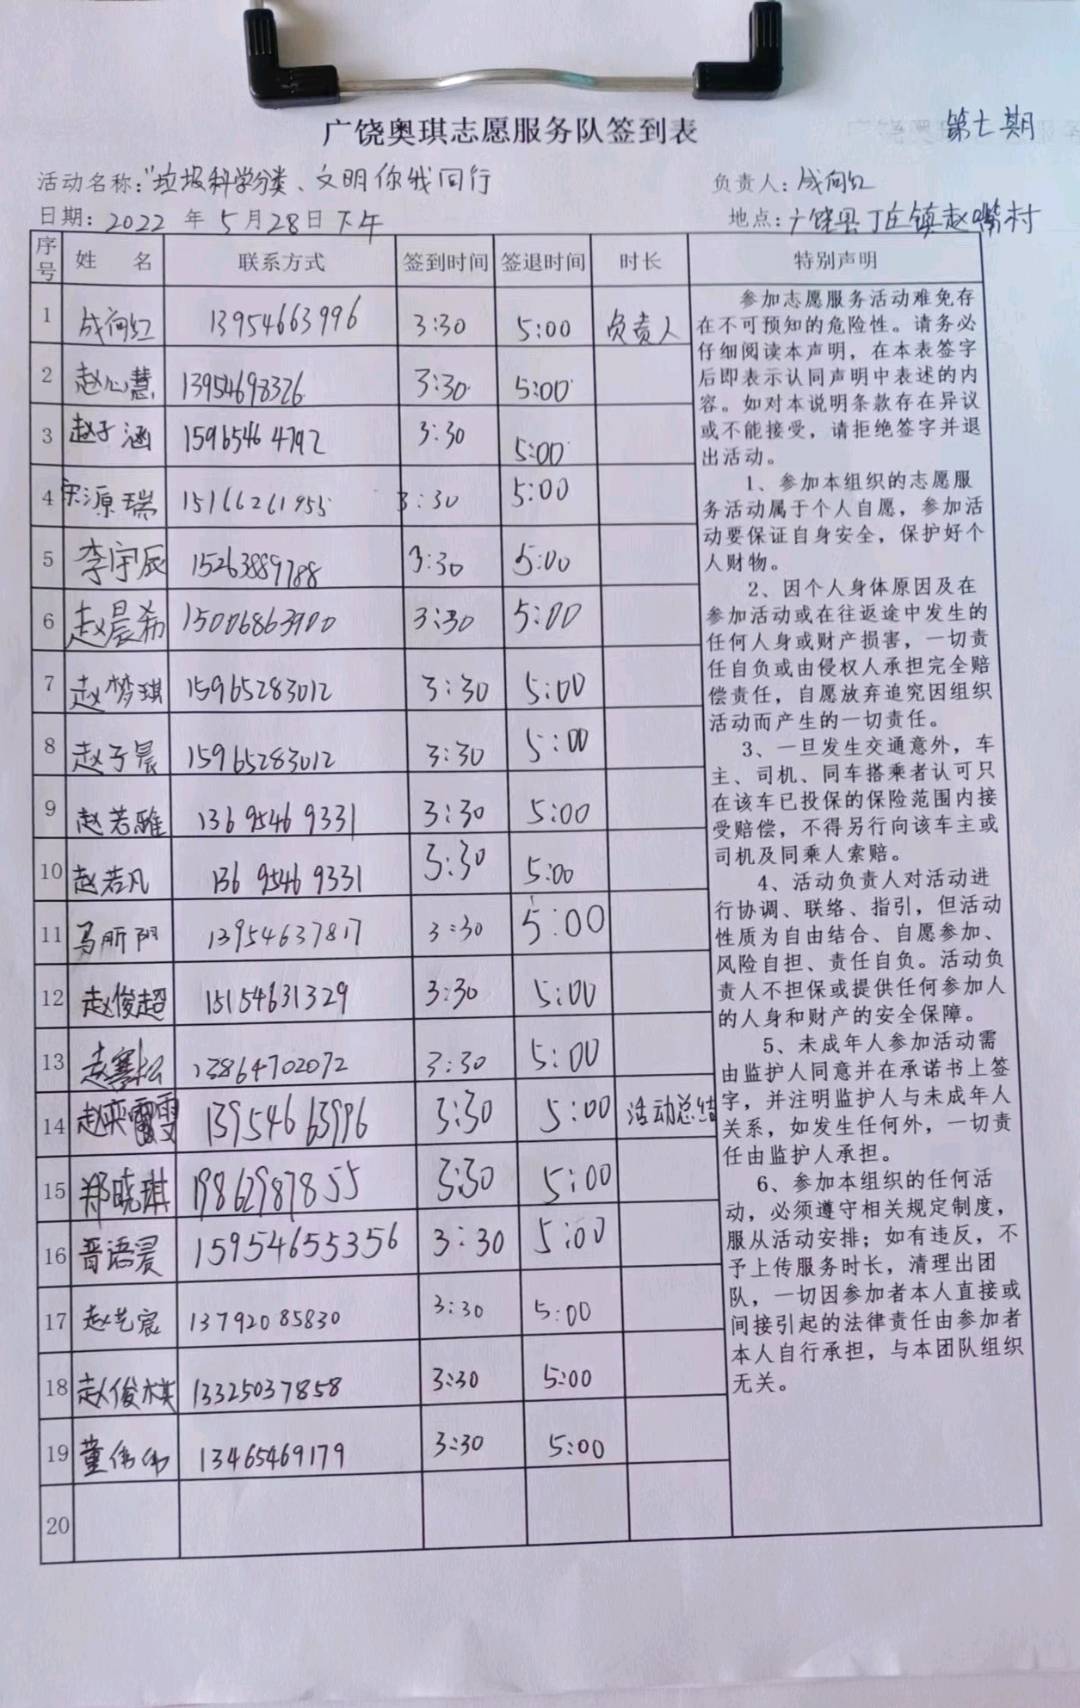 广饶奥琪志愿服务队签到表 第七期
活动名称:"垃圾科学分类、文明你我同行 负责人:成向红
日期:2022年5月28日下午 地点:广饶县丁庄镇赵嘴村
序号 姓名 联系方式 签到时间 签退时间 时长 特别声明
1 成向红 13954663996 3:30 5:00 负责人
2 赵心慧 13954698326 3:30 5:00
3 赵子涵 15965464792 3:30 5:00
4 宋源瑞 15166261955 3:30 5:00
5 李宇辰 15263889788 3:30 5:00
6 赵晨希 15006863900 3:30 5:00
7 赵梦琪 15965283012 3:30 5:00
8 赵子晨 15965283012 3:30 5:00
9 赵若雅 136 9546 9331 3:30 5:00
10 赵若凡 136 9546 9331 3:30 5:00
11 马昕阳 13954637817 3:30 5:00
12 赵俊超 15154631329 3:30 5:00
13 赵赛松 13864702072 3:30 5:00
14 赵奕雯 13954663996 3:30 5:00 活动总结
15 郑晓琪 19862987855 3:30 5:00
16 晋语晨 15954655356 3:30 5:00
17 赵艺宸 13792085830 3:30 5:00
18 赵俊棋 13325037858 3:30 5:00
19 董伟伟 13465469179 3:30 5:00
20
参加志愿服务活动难免存
在不可预知的危险性。请务必
仔细阅读本声明，在本表签字
后即表示认同声明中表述的内
容。如对本说明条款存在异议
或不能接受，请拒绝签字并退
出活动。
1、参加本组织的志愿服
务活动属于个人自愿，参加活
动要保证自身安全，保护好个
人财物。
2、因个人身体原因及在
参加活动或在往返途中发生的
任何人身或财产损害，一切责
任自负或由侵权人承担完全赔
偿责任，自愿放弃追究因组织
活动而产生的一切责任。
3、一旦发生交通意外，车
主、司机、同车搭乘者认可只
在该车已投保的保险范围内接
受赔偿，不得另行向该车主或
司机及同乘人索赔。
4、活动负责人对活动进
行协调、联络、指引，但活动
性质为自由结合、自愿参加、
风险自担、责任自负。活动负
责人不担保或提供任何参加人
的人身和财产的安全保障。
5、未成年人参加活动需
由监护人同意并在承诺书上签
字，并注明监护人与未成年人
关系，如发生任何外，一切责
任由监护人承担。
6、参加本组织的任何活
动，必须遵守相关规定制度，
服从活动安排；如有违反，不
予上传服务时长，清理出团
队，一切因参加者本人直接或
间接引起的法律责任由参加者
本人自行承担，与本团队组织
无关。